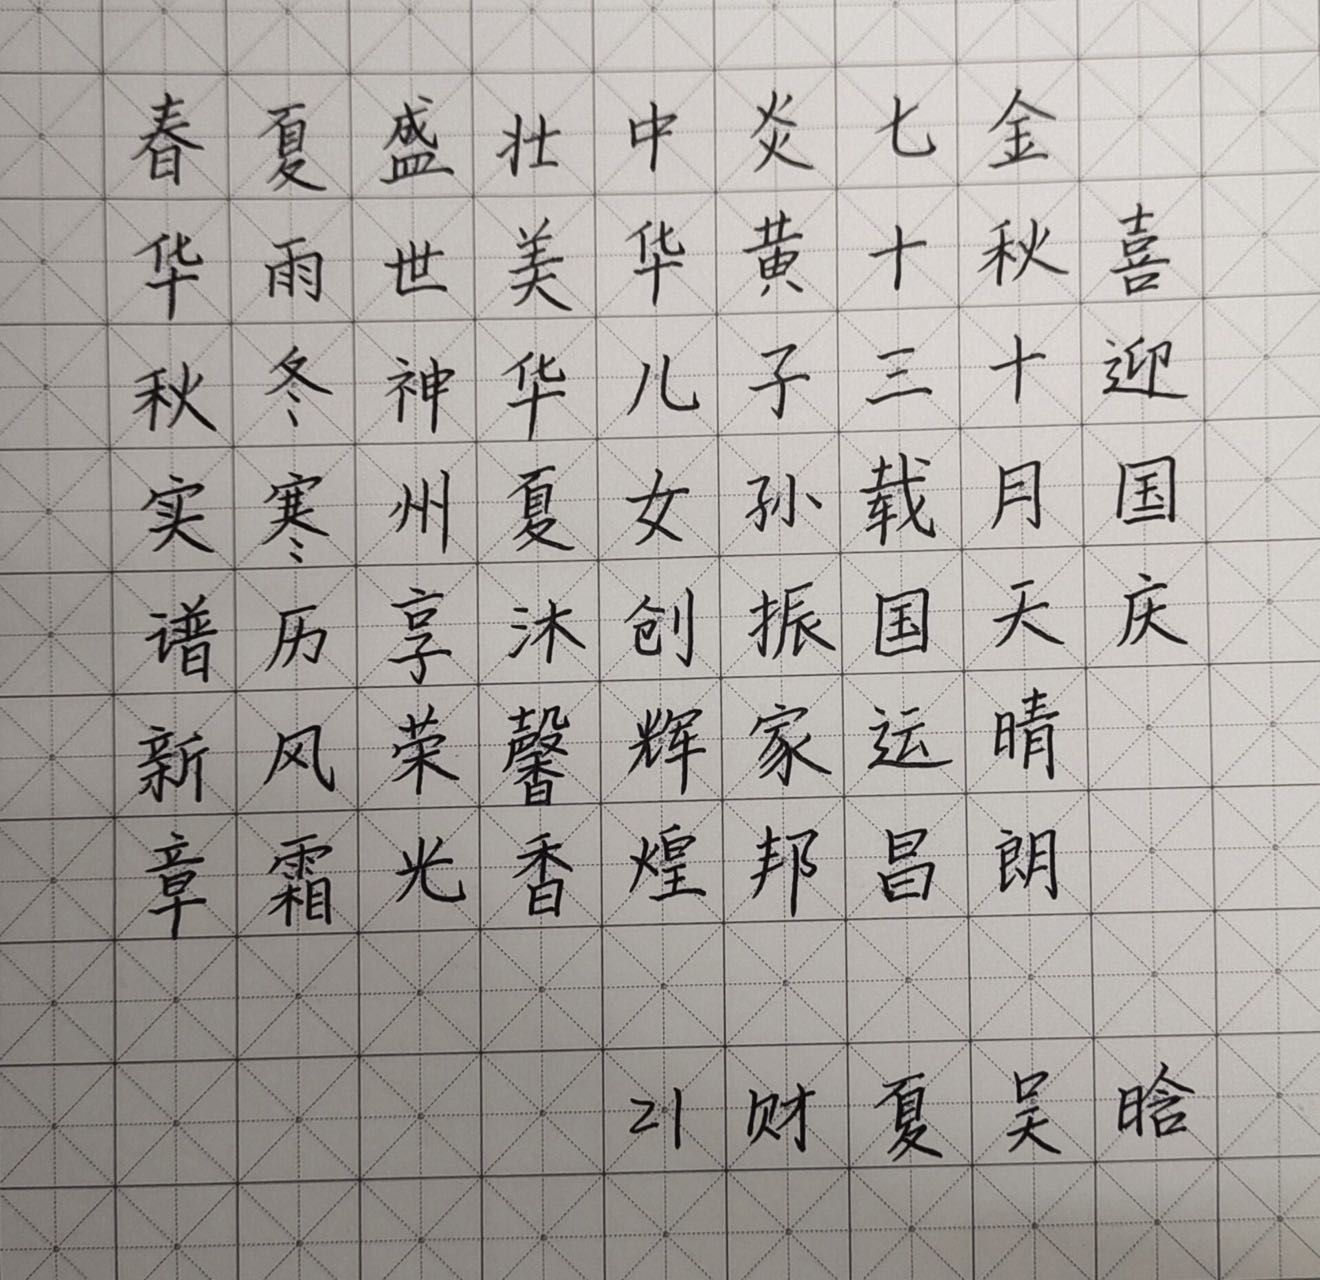 喜迎国庆
金秋十月天晴朗
七十三载国运昌
炎黄子孙振家邦
中华儿女创辉煌
壮美华夏沐馨香
盛世神州享荣光
夏雨冬寒历风霜
春华秋实谱新章
21财夏吴晗